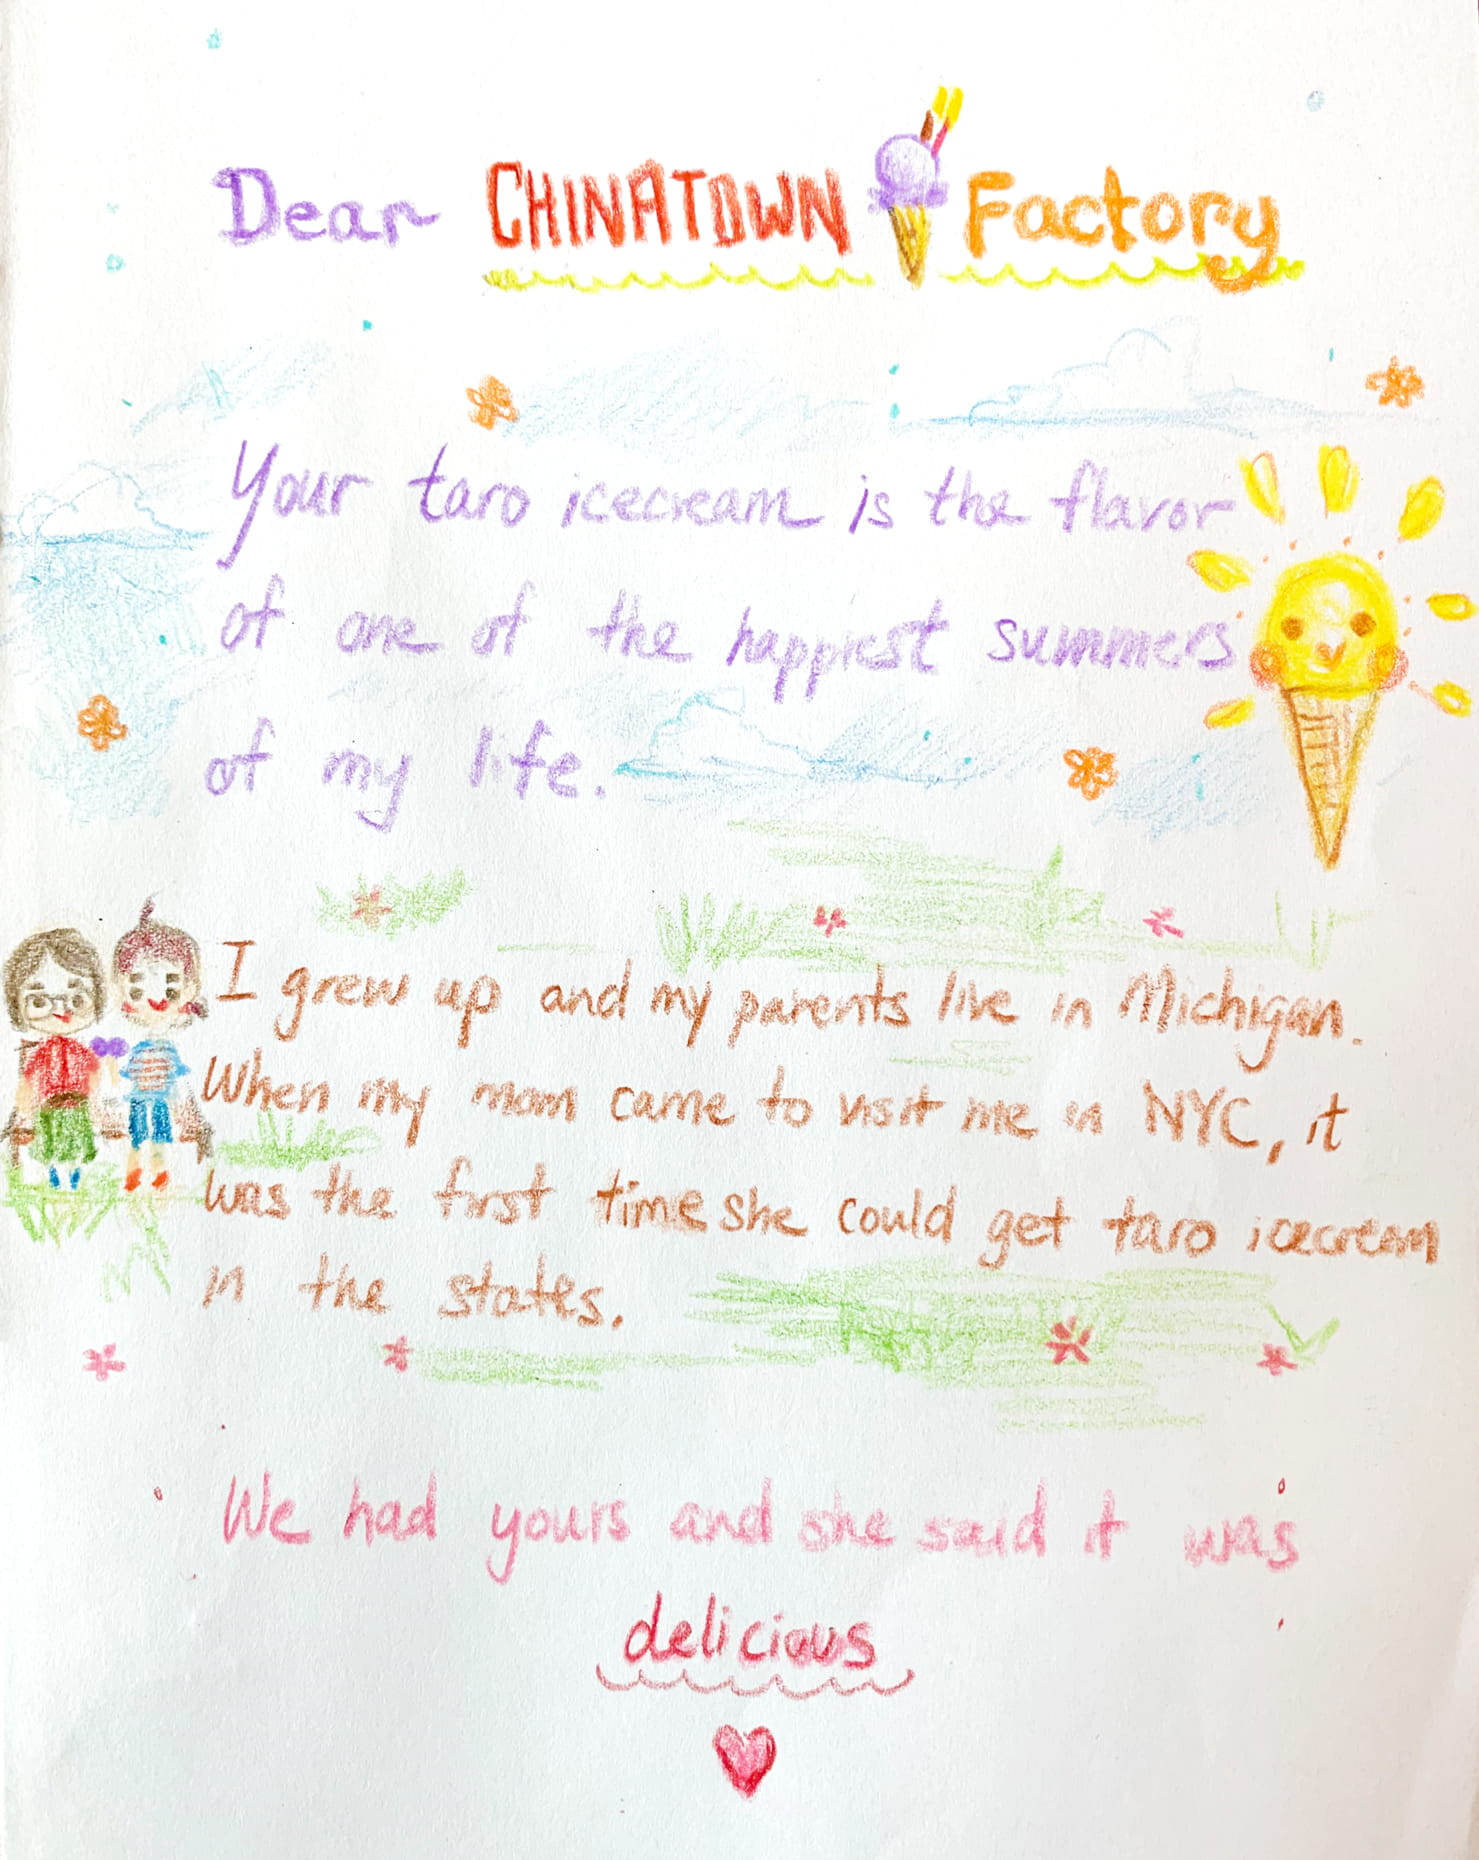 Dear CHINATOWN Factory
Your taro icecream is the flavor
of one of the happiest summers
of my life.
I grew up and my parents live in Michigan.
When my mom came to visit me in NYC, it
was the first time she could get taro icecream
in the states.
We had yours and she said it was
delicious